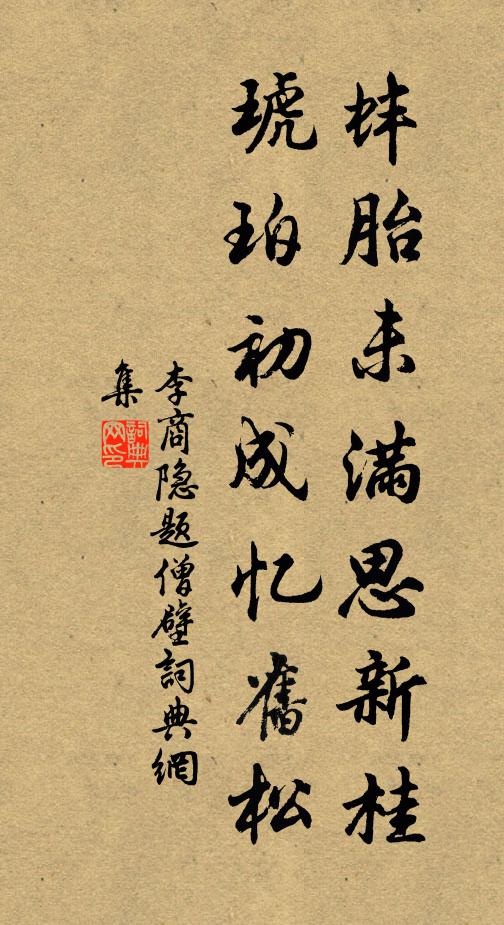 蚌胎未满思新桂
琥珀初成忆舊松
李商隐题僧壁詞典網
集
詞典
网印